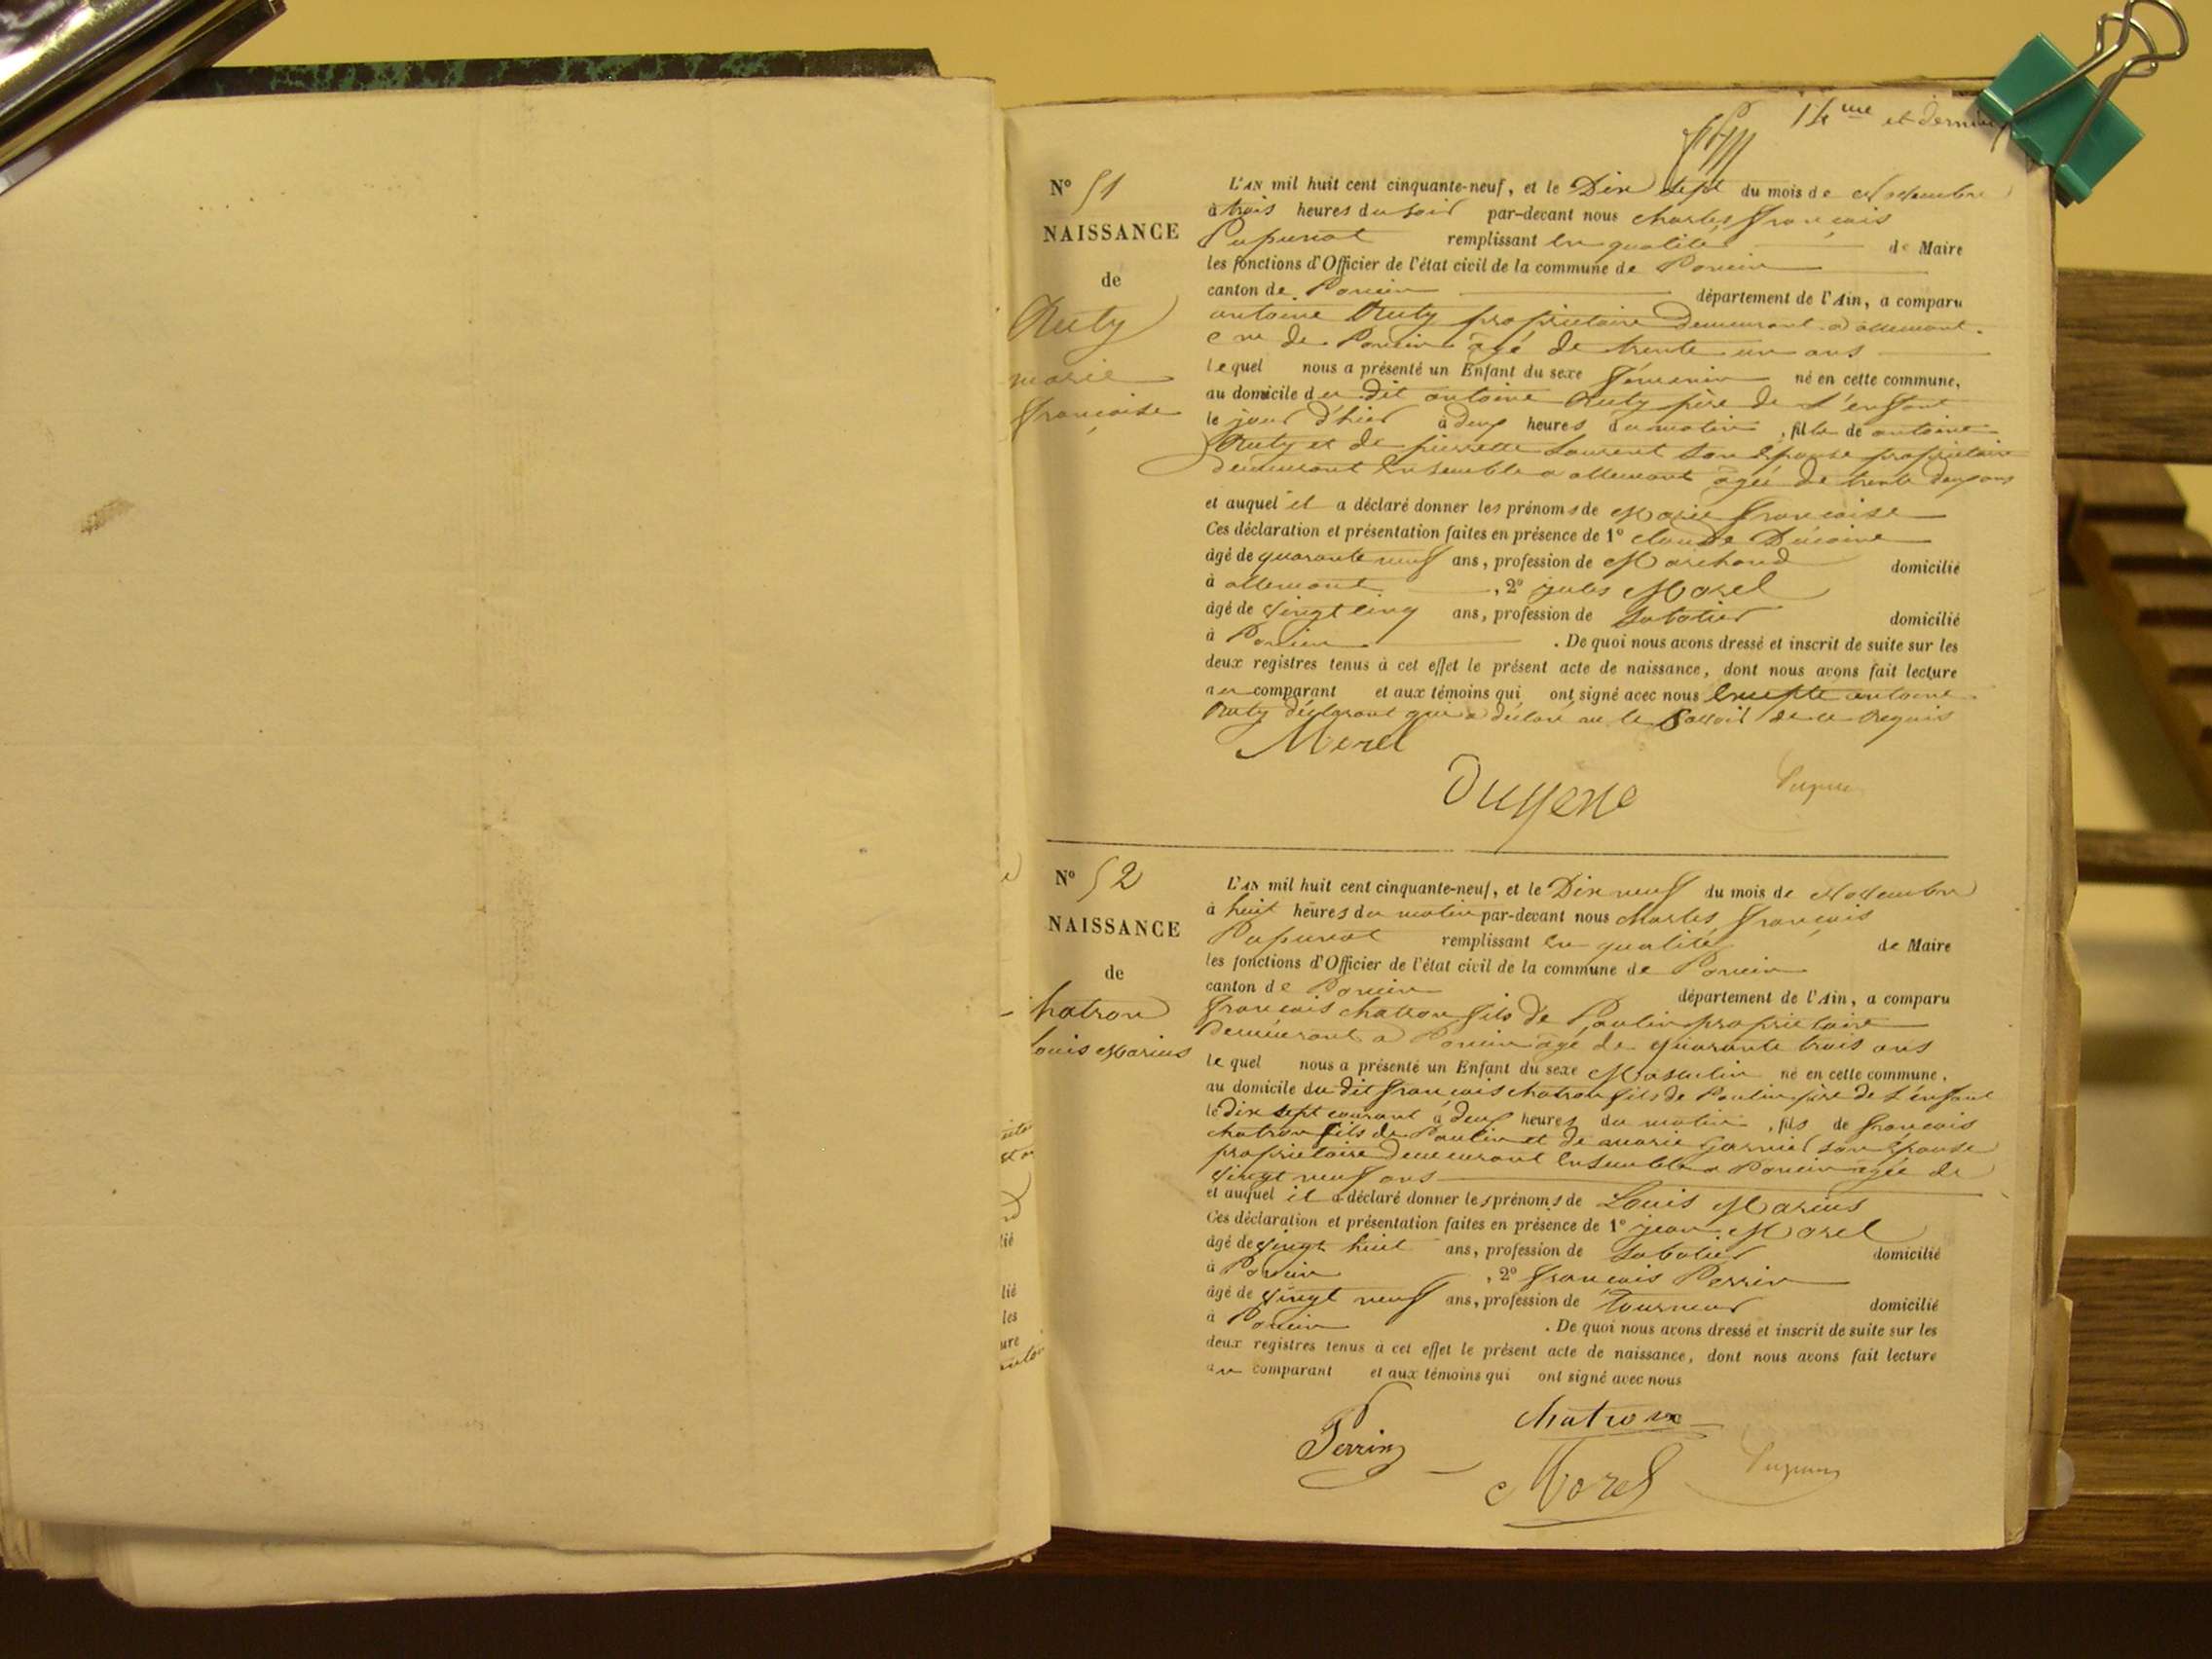 14me et dernier
N° 51
NAISSANCE
de
Ruty
marie
françoise
L'AN mil huit cent cinquante-neuf, et le Dix sept du mois de Novembre
à trois heures du soir par-devant nous Charles françois
Pupunat remplissant en qualité de Maire
les fonctions d'Officier de l'état civil de la commune de Poncin
canton de Poncin département de l'Ain, a comparu
antoine Ruty propriétaire demeurant a allement
cne de Poncin âgé de trente un ans
lequel nous a présenté un Enfant du sexe féminin né en cette commune,
au domicile du dit antoine Ruty père de l'enfant
le jour d'hier à deux heures du matin, fille de antoine
Ruty et de pierrette Laurent son épouse propriétaire
demeurant ensemble a allement âgée de trente deux ans
et auquel il a déclaré donner les prénoms de Marie françoise
Ces déclaration et présentation faites en présence de 1° claude
âgé de quarante neuf ans, profession de Marchand domicilié
à allement, 2° jules Morel
âgé de vingt cinq ans, profession de Sabotier domicilié
à Poncin. De quoi nous avons dressé et inscrit de suite sur les
deux registres tenus à cet effet le présent acte de naissance, dont nous avons fait lecture
au comparant et aux témoins qui ont signé avec nous Excepté antoine
Ruty déclarant qui a déclaré ne le Savoir de ce Requis
Morel
N° 52
NAISSANCE
de
hatron
ouis Marius
L'AN mil huit cent cinquante-neuf, et le Dix neuf du mois de Novembre
à huit heures du matin par-devant nous Charles françois
Pupunat remplissant en qualité de Maire
les fonctions d'Officier de l'état civil de la commune de Poncin
canton de Poncin département de l'Ain, a comparu
françois chatron fils de Paulin propriétaire
Demeurant a Poncin âgé de quarante trois ans
lequel nous a présenté un Enfant du sexe Masculin né en cette commune,
au domicile du dit françois chatron fils de Paulin père de l'enfant
le dix sept courant à deux heures du matin, fils de françois
chatron fils de Paulin et de marie garnier son épouse
propriétaire demeurant Ensemble a Poncin âgée de
vingt neuf ans
et auquel il a déclaré donner les prénoms de Louis Marius
Ces déclaration et présentation faites en présence de 1° jean Morel
âgé de vingt huit ans, profession de Sabotier domicilié
à Poncin, 2° françois Perrin
âgé de vingt neuf ans, profession de tourneur domicilié
à Poncin. De quoi nous avons dressé et inscrit de suite sur les
deux registres tenus à cet effet le présent acte de naissance, dont nous avons fait lecture
au comparant et aux témoins qui ont signé avec nous
chatron
Perrin
Morel